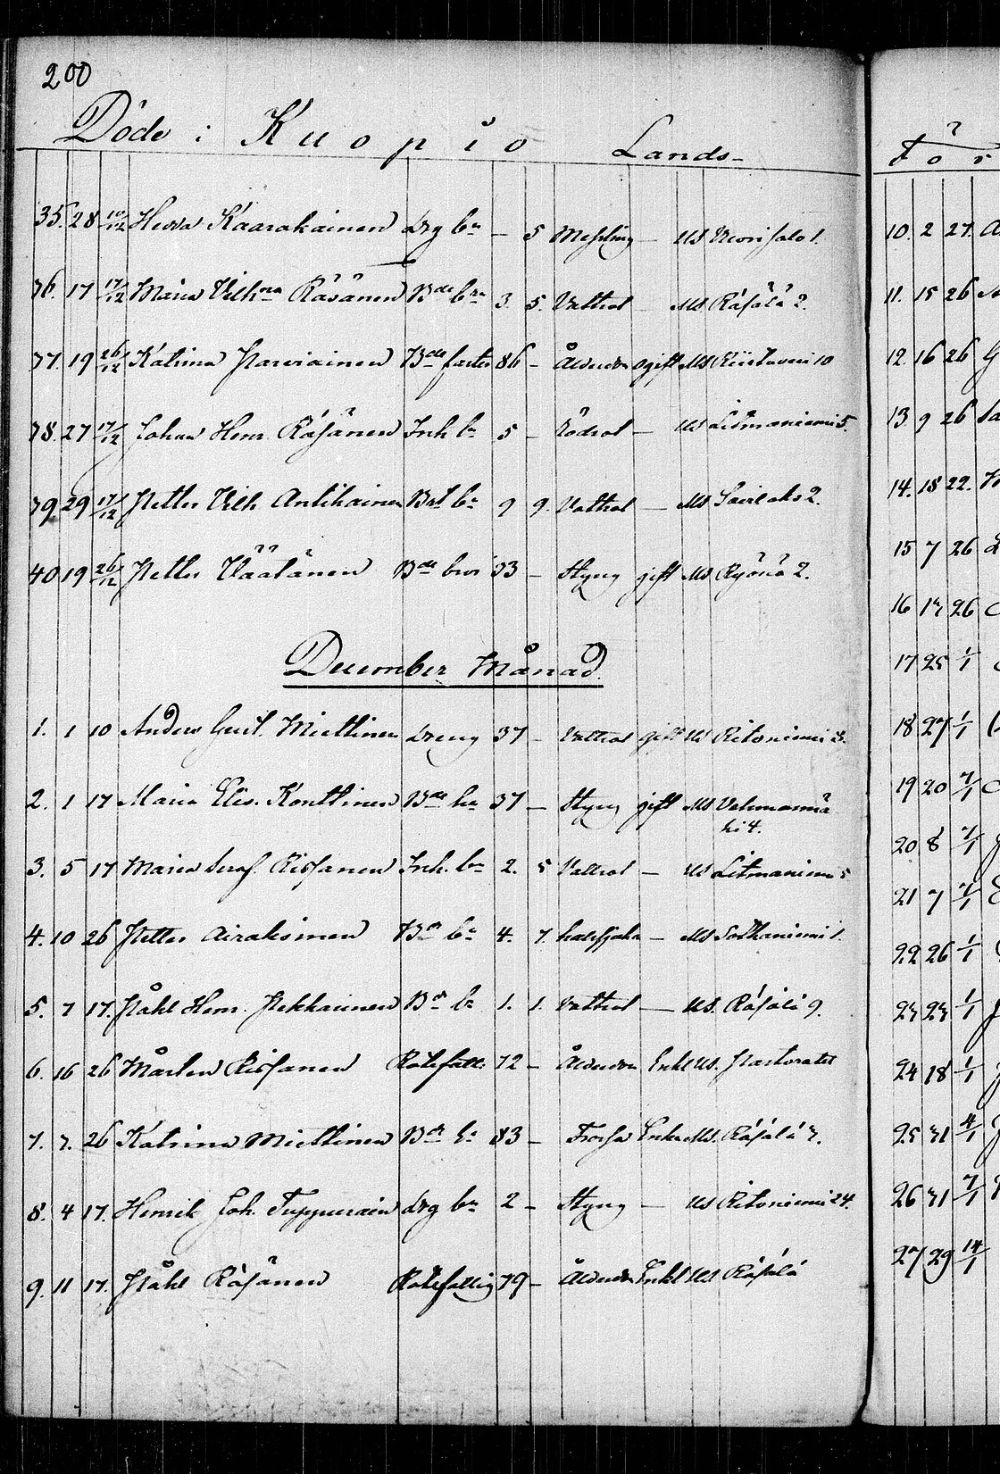 200
Döde i Kuopio Lands-
35. 28 10/12 Hedda Kaarakainen Drg br – 5 Messling – Ms Vuorisalo 1.
36. 17 17/12 Maria Vilhna Räsänen Bde br 3. 5. Vattsot – Ms Räsälä 2.
37. 19 26/12 Katrina Parviainen Bde faster 86 – Ålderdom ogift Ms 10
38. 27 17/12 Johan Henr. Räsänen Inh br 5 – Rödsot – Ms Litmaniemi 5.
39 29 17/12 Petter Vilh Antikainen br 9 9. Vattsot – Ms Savilaks 2.
40 19 26/12 Petter Väätänen Bde bror 33 – Styng gift Ms Ryönä 2.
December Månad.
1. 1 10 Anders Gust. Miettinen Dreng 37 – Vattsot gift Ms Ritoniemi 3.
2. 1 17 Maria Elis. Konttinen Bde hu 37 – Styng gift Ms Vehmasmä
ki 4.
3. 5 17 Maria Seraf. Rissanen Inh. br 2. 5 Vattsot – Ms Litmaniemi 5
4. 10 26 Petter Airaksinen Bde br 4. 7. halssjuka – Ms Sotkaniemi 1.
5. 7 17. Påhl Henr. Pekkarinen Bde br 1. 1. Vattsot – Ms. Räsälä 9.
6. 16 26 Mårten Rissanen Rotefatt. 72 – Ålderdom Enkl Ms. Pastoratet
7. 7. 26 Katrina Miettinen 83 – Frossa Enka Ms. Räsälä 7.
8. 4 17. Henrik Joh. Tuppurain Drg br 2 – Styng – Ms Ritoniemi 24.
9. 11 17. Påhl Räsänen Rotefattig 79 – Ålderdom Enkl Ms Räsälä
För
10. 2 27.
11. 15 26
12. 16 26
13. 9 26
14. 18 22.
15 7 26
16 17 26
17 25 1/1
18 27 1/1
19 20 7/1
20. 8 7/1
21 7 7/1
22 26 1/1
23 23 1/1
24 18 1/1
25 31 4/1
26 31 7/1
27 29 14/1